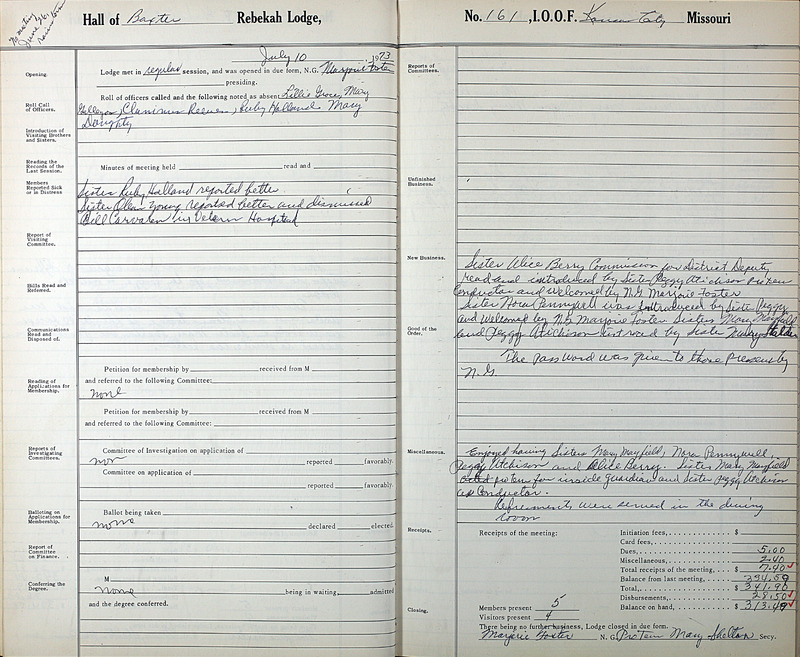 No meeting
June 26,
Hall of Baxter Rebekah Lodge,
July 10 1973
Opening.
Lodge met in regular session, and was opened in due form, N.G. Marjorie Foster
presiding.
Roll Call of Officers.
Roll of officers called and the following noted as absent Lillie Groce, Mary
Ruby Holland Mary
Doughty
Introduction of Visiting Brothers and Sisters.
Reading the Records of the Last Session.
Minutes of meeting held read and
Members Reported Sick or in Distress
Sister Ruby Holland reported better
Sister Olan Young reported better and dismissed
Bill in
Report of Visiting Committee.
Bills Read and Referred.
Communications Read and Disposed of.
Petition for membership by received from M
and referred to the following Committee:
Reading of Applications for Membership.
none
Petition for membership by received from M
and referred to the following Committee:
Reports of Investigating Committees.
Committee of Investigation on application of
non reported favorably.
Committee on application of
reported favorably.
Balloting on Applications for Membership.
Ballot being taken
none declared elected.
Report of Committee on Finance.
Conferring the Degree.
M
none being in waiting, admitted
and the degree conferred.
No. 161, I.O.O.F. Kansas City Missouri
Reports of Committees.
Unfinished Business.
New Business.
Sister Alice Berry Commission for District Deputy
read and introduced by Sister Peggy Atchison
Conductor and Welcomed by N.G Marjorie Foster
Sister Nora Pennywell was introduced by Sister Peggy
and Welcomed by N.G Marjorie Foster Sisters Mary Mayfield
Good of the Order.
and Peggy Atichison by Sister Mary
The Password was given to those present by
N.G.
Miscellaneous.
Enjoyed having Sisters Mary Mayfield, Nora Pennywell,
Peggy Atchison and Alice Berry. Sister Mary Mayfield
acted protem for inside guardian and Sister Peggy Atchison
as Conductor.
Refreshments were served in the dining
room
Receipts.
Receipts of the meeting:
Initiation fees, $
Card fees,
Dues, 5.00
Miscellaneous, 2.40
Total receipts of the meeting, $ 7.40
Balance from last meeting, 334.59
Total, $ 341.90
Disbursements, 28.50
Balance on hand, $ 313.49
Members present 5
Visitors present 4
Closing.
There being no further business, Lodge closed in due form.
Marjorie Foster N. G. Protem Mary Shelton Secy.